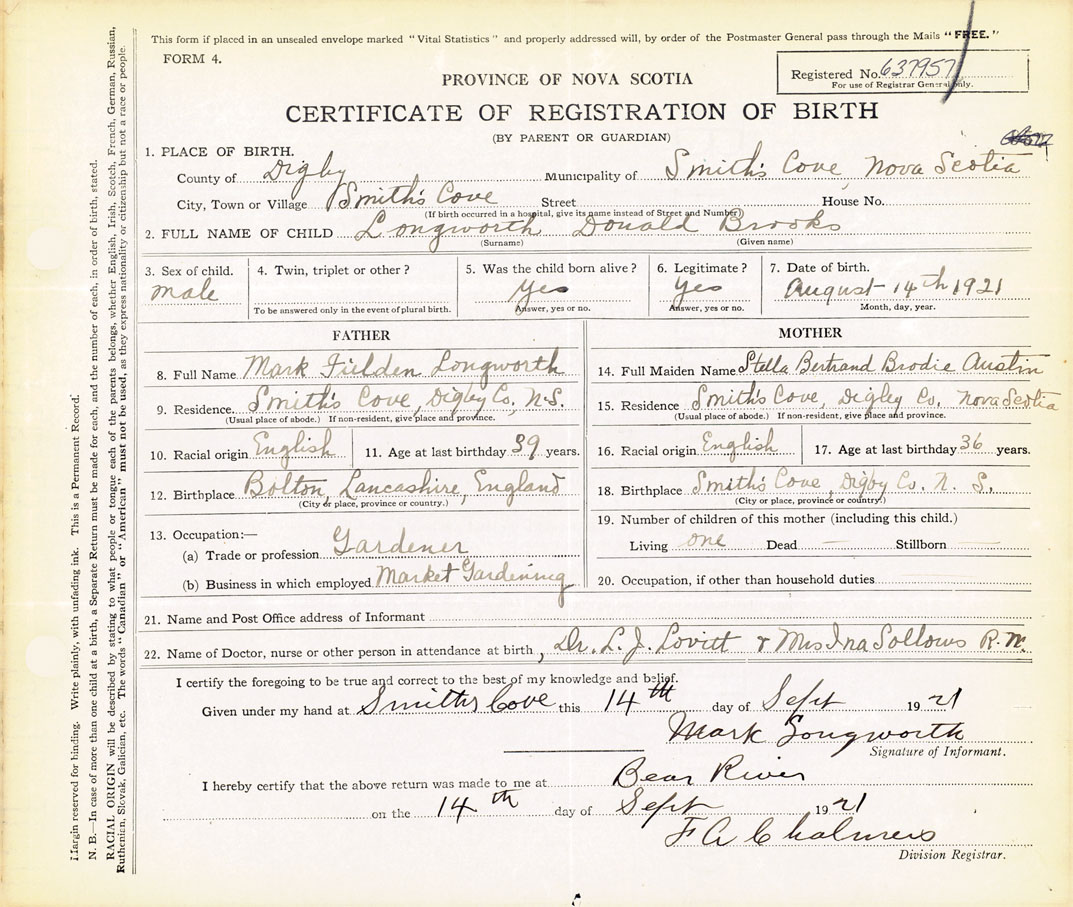 This form if placed in an unsealed envelope marked "Vital Statistics" and properly addressed will, by order of the Postmaster General pass through the Mails "FREE."
FORM 4.
PROVINCE OF NOVA SCOTIA
Registered No. 637957
For use of Registrar General only.
CERTIFICATE OF REGISTRATION OF BIRTH
(BY PARENT OR GUARDIAN)
1. PLACE OF BIRTH.
County of Digby Municipality of Smith's Cove, Nova Scotia
City, Town or Village Smith's Cove Street House No.
(If birth occurred in a hospital, give its name instead of Street and Number)
2. FULL NAME OF CHILD Longworth Donald Brooks
(Surname) (Given name)
3. Sex of child. 4. Twin, triplet or other? 5. Was the child born alive? 6. Legitimate? 7. Date of birth.
male Yes Yes August 14th 1921
To be answered only in the event of plural birth. Answer, yes or no. Answer, yes or no. Month, day, year.
FATHER
8. Full Name Mark Fielden Longworth
9. Residence. Smith's Cove, Digby Co., N.S.
(Usual place of abode.) If non-resident, give place and province.
10. Racial origin English 11. Age at last birthday 39 years.
12. Birthplace Bolton, Lancashire, England
(City or place, province or country.)
13. Occupation:—
(a) Trade or profession Gardener
(b) Business in which employed Market Gardening
MOTHER
14. Full Maiden Name Stella Bertrand Brodie Austin
15. Residence Smith's Cove, Digby Co. Nova Scotia
(Usual place of abode.) If non-resident, give place and province.
16. Racial origin English 17. Age at last birthday 36 years.
18. Birthplace Smith's Cove, Digby Co. N. S.
(City or place, province or country.)
19. Number of children of this mother (including this child.)
Living one Dead — Stillborn —
20. Occupation, if other than household duties
21. Name and Post Office address of Informant
22. Name of Doctor, nurse or other person in attendance at birth, Dr. L. J. Lovitt & Mrs Ina Sollows R.N.
I certify the foregoing to be true and correct to the best of my knowledge and belief.
Given under my hand at Smiths Cove this 14th day of Sept 1921
Mark Longworth
Signature of Informant.
I hereby certify that the above return was made to me at Bear River
on the 14th day of Sept 1921
F A Chalmers
Division Registrar.
Margin reserved for binding. Write plainly, with unfading ink. This is a Permanent Record.
N. B.—In case of more than one child at a birth, a Separate Return must be made for each, and the number of each, in order of birth, stated.
RACIAL ORIGIN will be described by stating to what people or tongue each of the parents belongs, whether English, Irish, Scotch, French, German, Russian,
Ruthenian, Slovak, Galician, etc. The words "Canadian" or "American" must not be used, as they express nationality or citizenship but not a race or people.